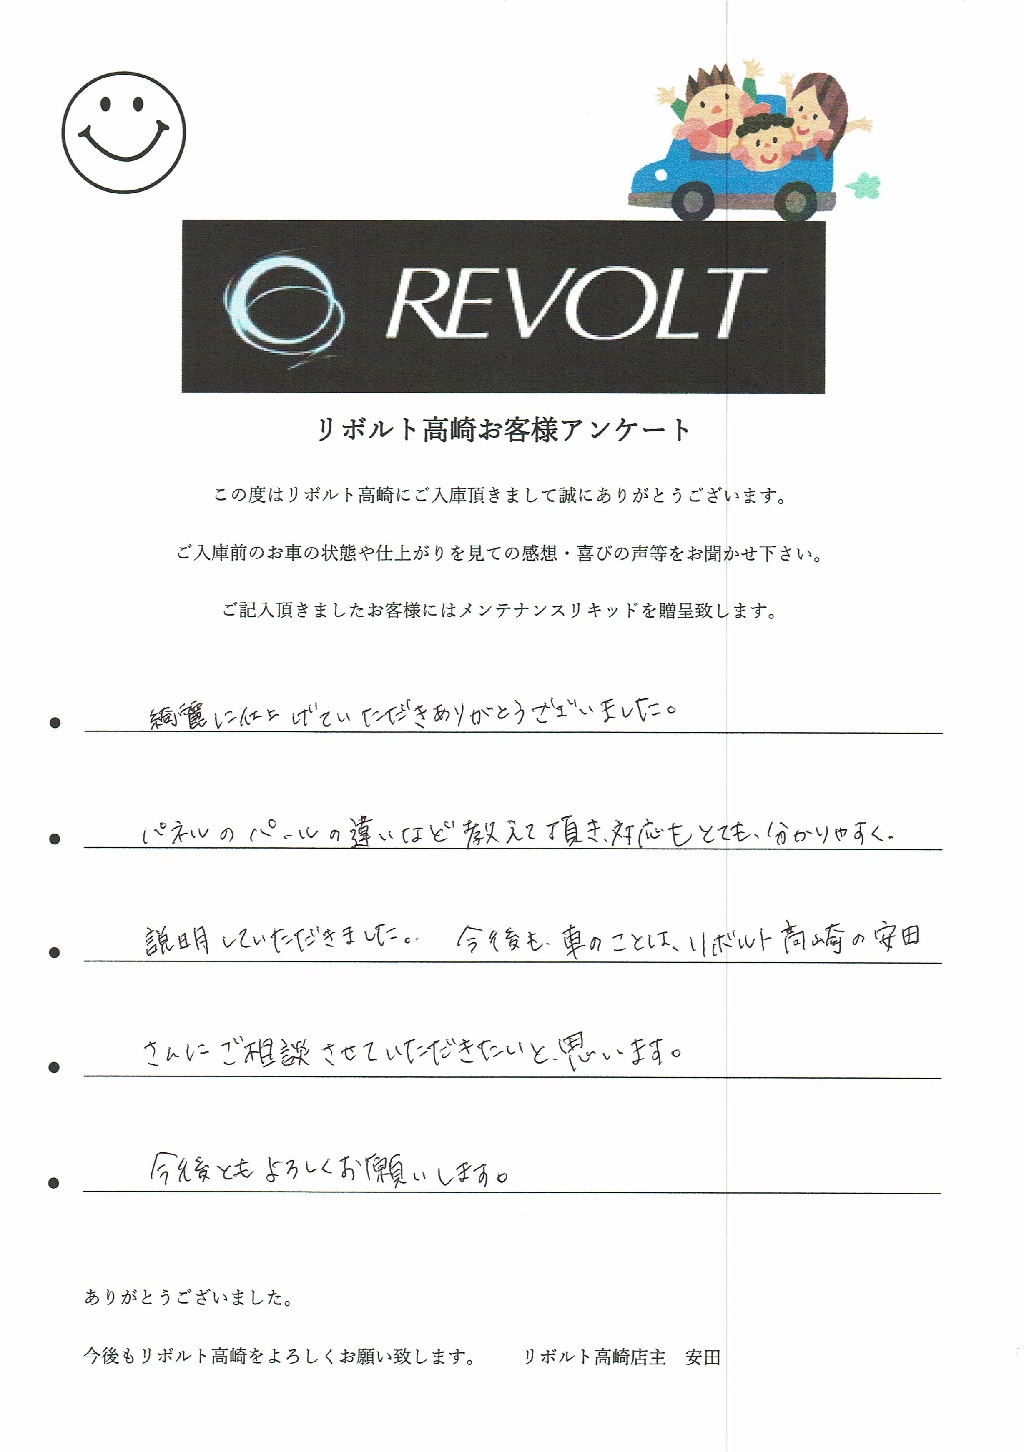 REVOLT
リボルト高崎お客様アンケート
この度はリボルト高崎にご入庫頂きまして誠にありがとうございます。
ご入庫前のお車の状態や仕上がりを見ての感想・喜びの声等をお聞かせ下さい。
ご記入頂きましたお客様にはメンテナンスリキッドを贈呈致します。
綺麗に仕上げていただきありがとうございました。
パネルのパールの違いなど教えて頂き、対応もとても、分かりやすく、
説明していただきました。 今後も、車のことは、リボルト高崎の安田
さんにご相談させていただきたいと、思います。
今後ともよろしくお願いします。
ありがとうございました。
今後もリボルト高崎をよろしくお願い致します。 リボルト高崎店主 安田